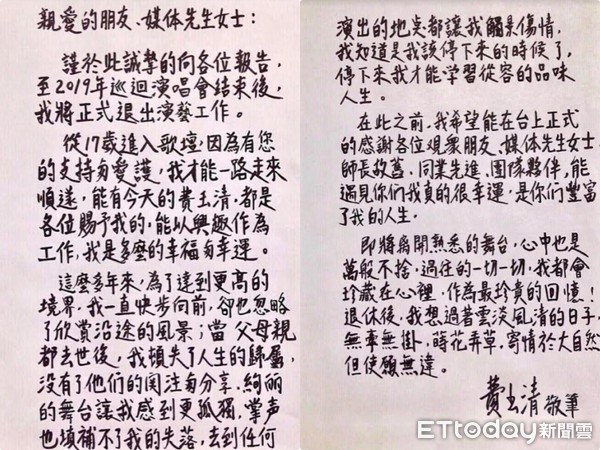 親愛的朋友、媒体先生女士：
謹於此誠摯的向各位報告，
至2019年巡迴演唱會結束後，
我將正式退出演藝工作。
從17歲進入歌壇，因為有您
的支持與愛護，我才能一路走來
順遂，能有今天的費玉清，都是
各位賜予我的，能以興趣作為
工作，我是多麼的幸福與幸運。
這麼多年來，為了達到更高的
境界，我一直快步向前，卻也忽略
了欣賞沿途的風景；當 父母親
都去世後，我頓失了人生的歸屬，
沒有了他們的関注与分享，絢麗
的舞台讓我感到更孤獨，掌声
也填補不了我的失落，去到任何
演出的地点都讓我觸景傷情，
我知道是我該停下來的時候了，
停下來我才能學習從容的品味
人生。
在此之前，我希望能在台上正式
的感謝各位觀衆朋友、媒体先生女士、
師長故舊、同業先進、團隊夥伴，能
遇見你們我真的很幸運，是你們豐富
了我的人生。
即將离開熟悉的舞台，心中也是
萬般不捨，過往的一切一切，我都會
珍藏在心裡，作為最珍貴的回憶！
退休後，我想過著雲淡風清的日子，
無牽無掛，蒔花弄草，寄情於大自然，
但使願無違。
費玉清 敬筆
ETtoday新聞雲